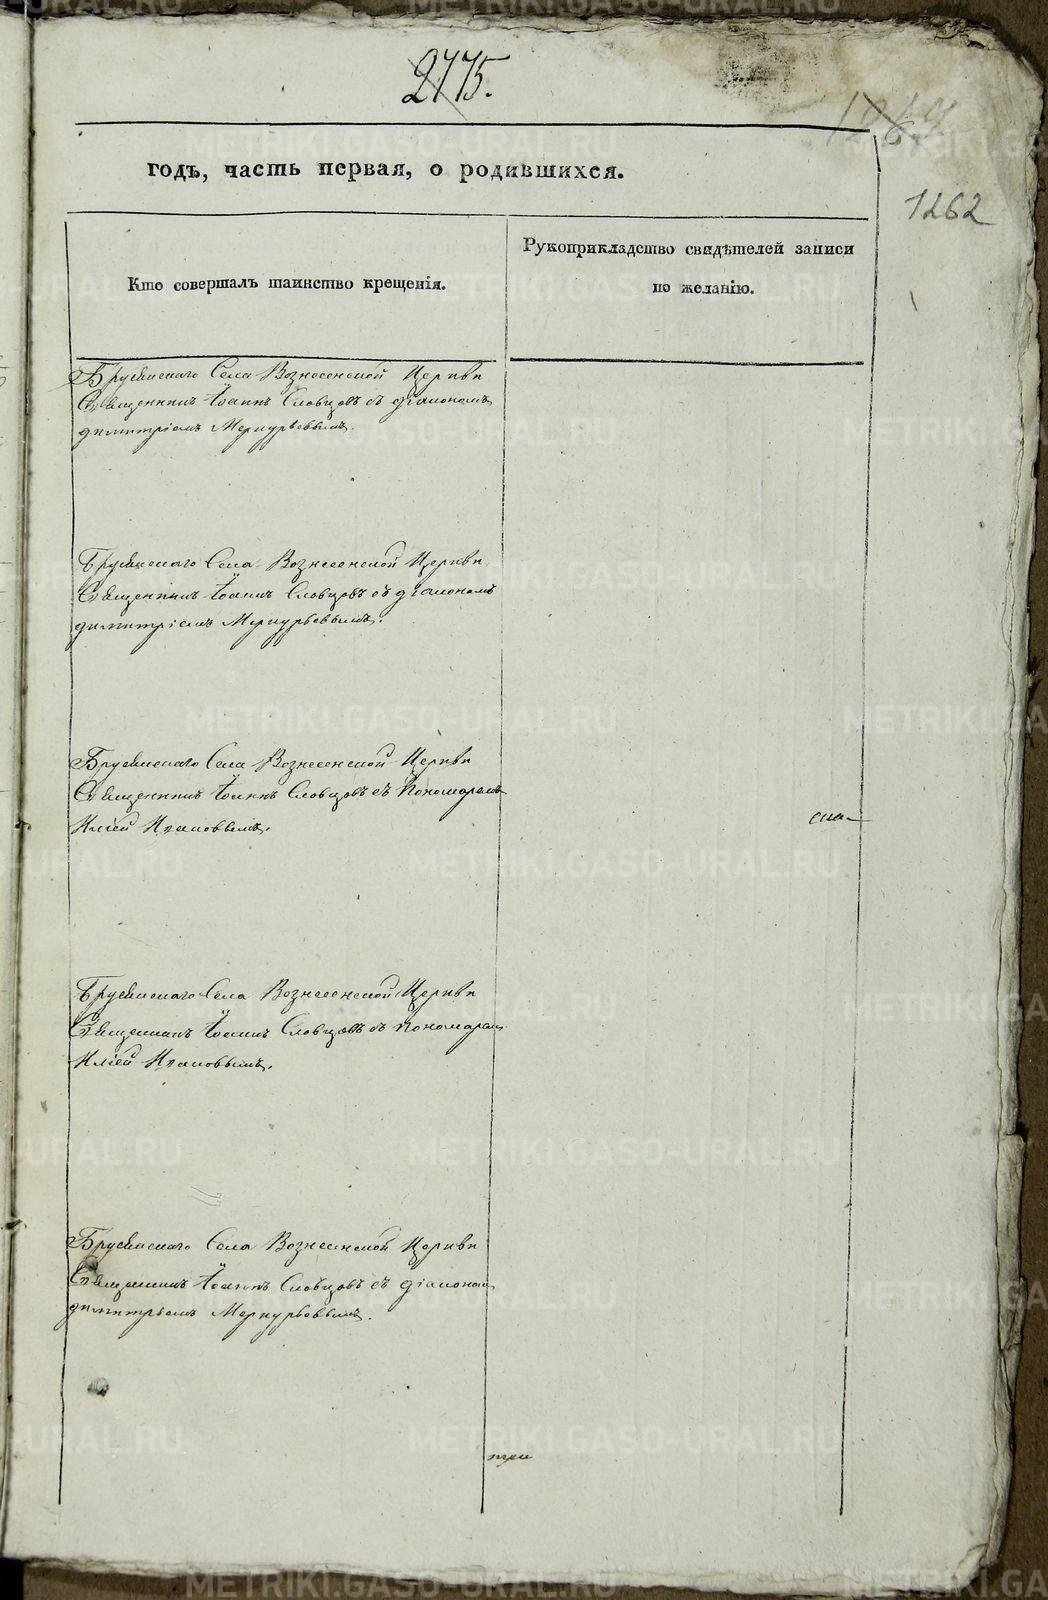 2775.
1262
годъ, часть первая, о родившихся.
Кто совершалъ таинство крещенія.
Рукоприкладство свидѣтелей записи
по желанію.
Бруснянскаго Села Вознесенской Церкви
Священникъ Іоаннъ Словцовъ съ діакономъ
димитріемъ Меркурьевымъ.
Бруснянскаго Села Вознесенской Церкви
Священникъ Іоаннъ Словцовъ съ діакономъ
димитріемъ Меркурьевымъ.
Бруснянскаго Села Вознесенской Церкви
Священникъ Іоаннъ Словцовъ съ Пономаремъ
Иліей Ивановымъ.
Бруснянскаго Села Вознесенской Церкви
Священникъ Іоаннъ Словцовъ съ Пономарем
Иліей Ивановымъ.
Бруснянскаго Села Вознесенской Церкви
Священникъ Іоаннъ Словцовъ съ діаконом
димитріемъ Меркурьевымъ.
при
METRIKI.GASO-URAL.RU